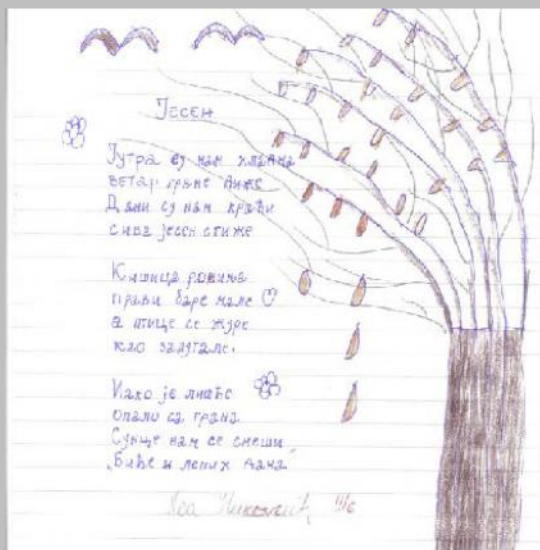 Јесен
Јутра су нам хладна
ветар грање њише
Дани су нам краћи
сива јесен стиже
Кишица ромиња
прави баре мале
а птице се журе
као залутале.
Иако је лишће
опало са грана
Сунце нам се смеши
„Биће и лепих дана“